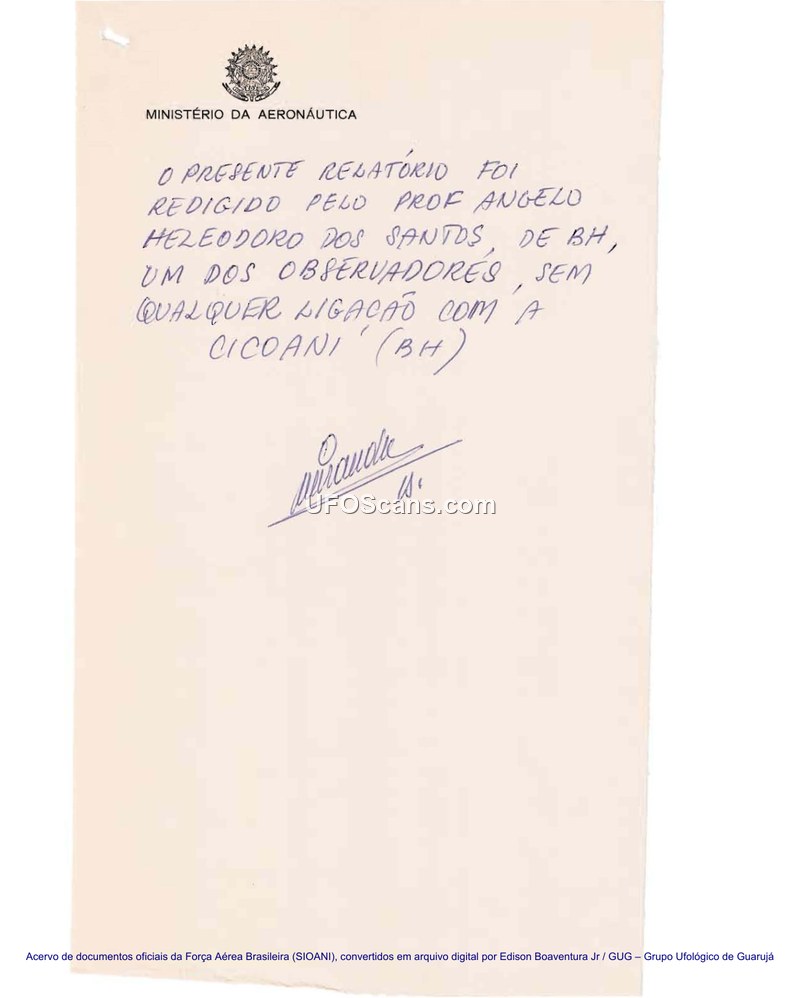 MINISTÉRIO DA AERONÁUTICA
O PRESENTE RELATÓRIO FOI
REDIGIDO PELO PROF ANGELO
HELEODORO DOS SANTOS, DE BH,
UM DOS OBSERVADORES, SEM
QUALQUER LIGAÇÃO COM A
CICOANI (BH)
UFOScans.com
Acervo de documentos oficiais da Força Aérea Brasileira (SIOANI), convertidos em arquivo digital por Edison Boaventura Jr / GUG – Grupo Ufológico de Guarujá